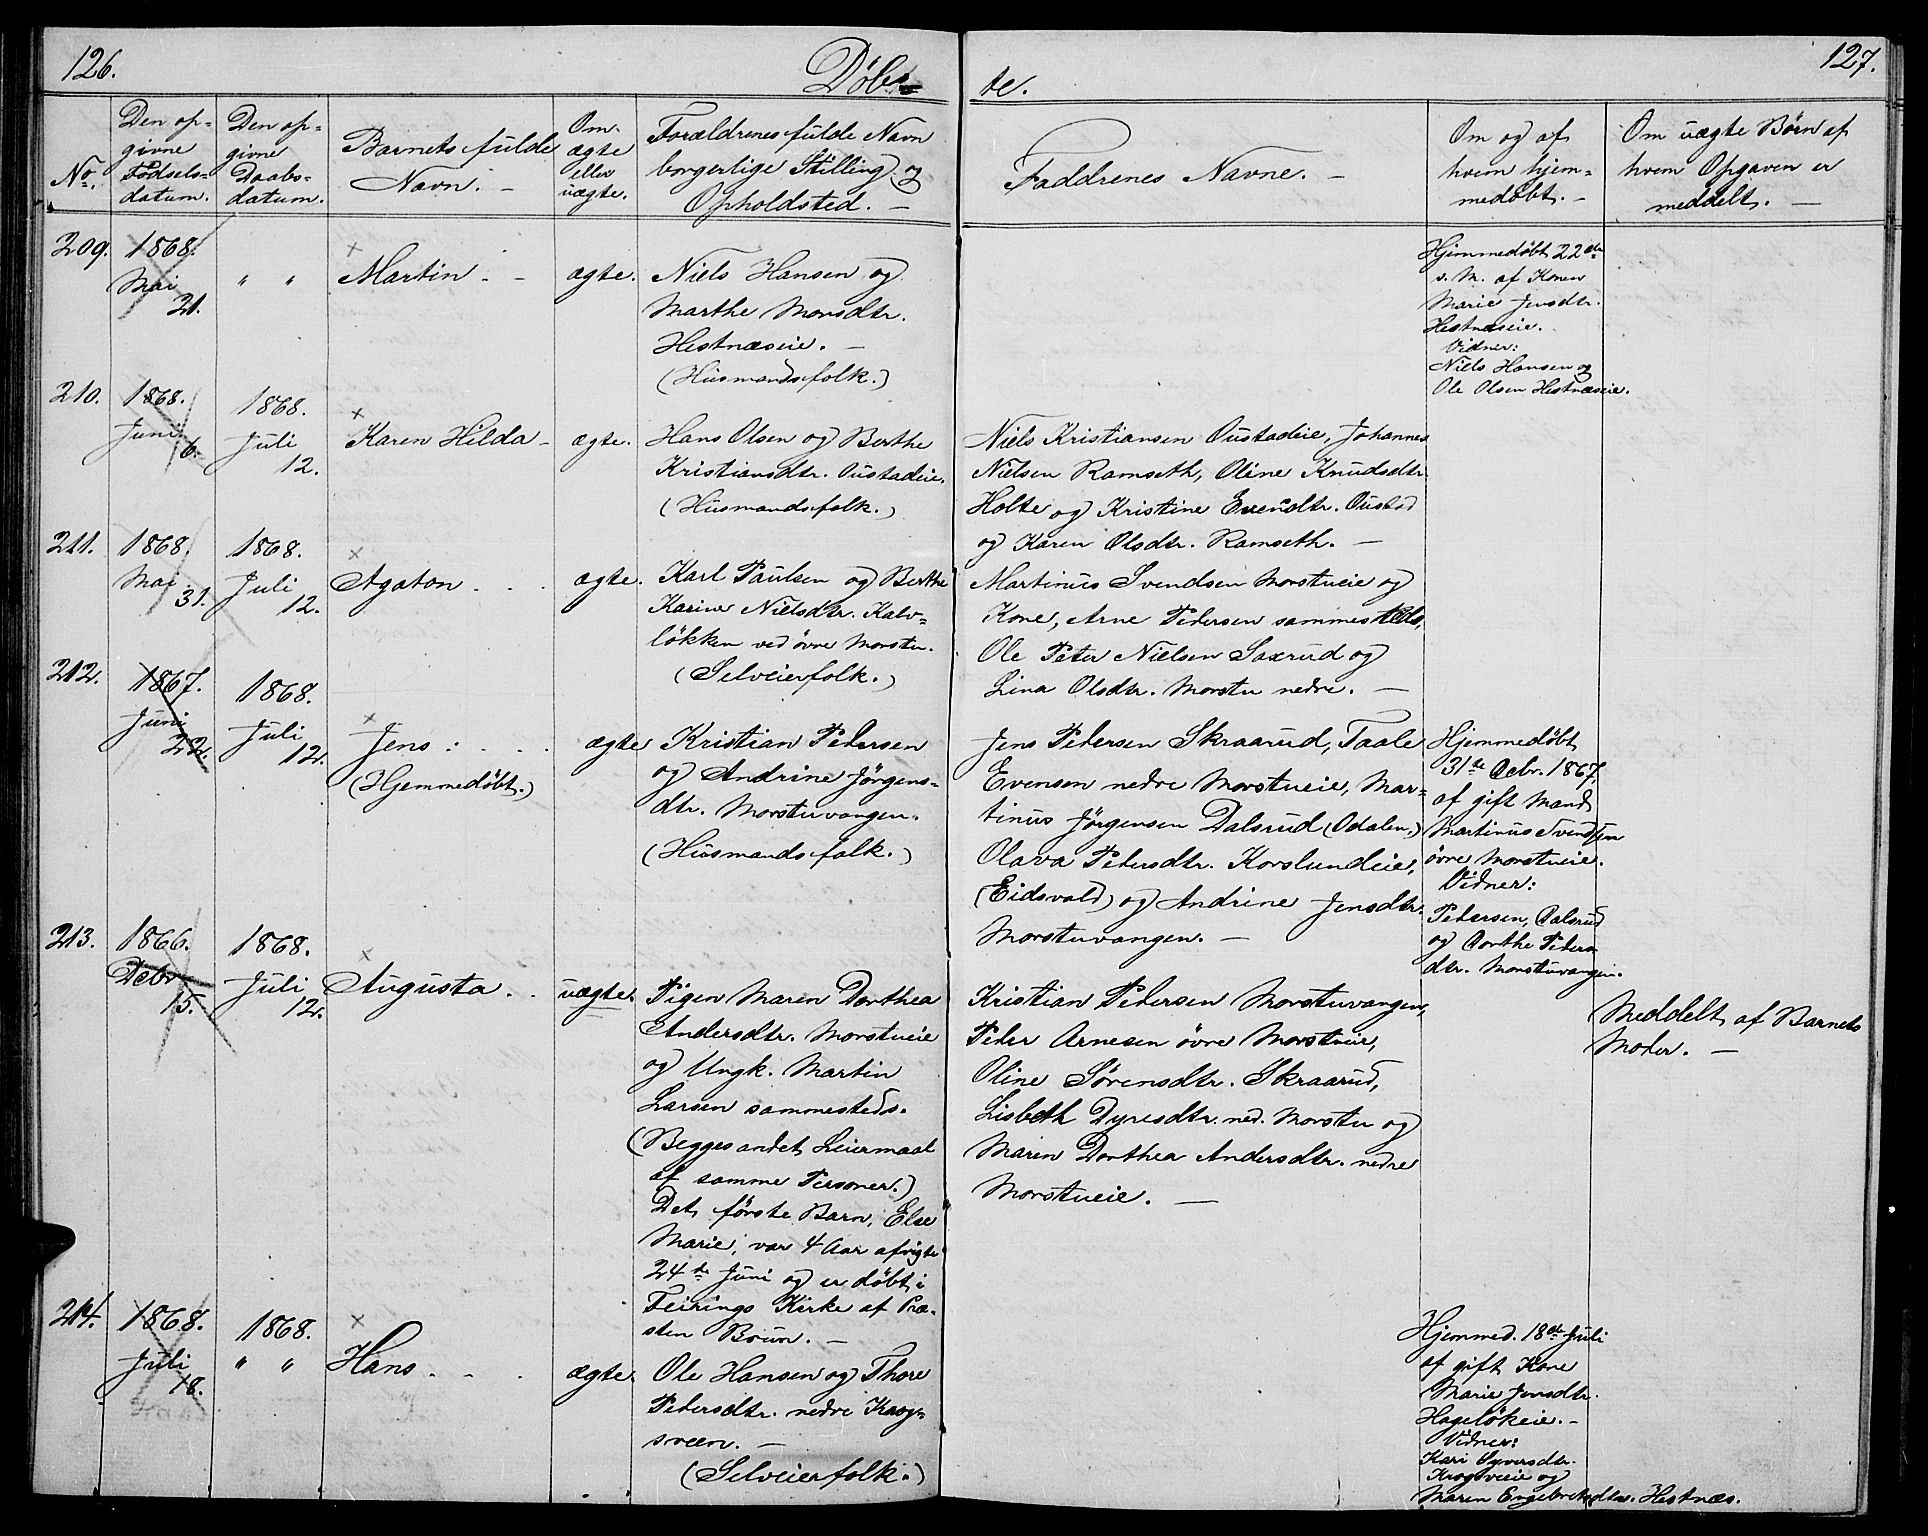 126.
Døbte.
127.
No.
Den op-
givne
Fødsels-
datum.
Den op-
givne
Daabs-
datum.
Barnets fulde
Navn. -
Om
ægte
eller
uægte.
Forældrenes fulde Navn
borgerlige Stilling og
Opholdsted. -
Faddrenes Navne. -
Om og af
hvem hjem-
medøbt. -
Om uægte Børn af
hvem Opgaven er
meddelt. -
209.
1868.
Mai
21.
" "
Martin. -
ægte.
Niels Hansen og
Marthe Monsdtr.
Hestnæseie. -
(Husmandsfolk.)
Hjemmedøbt 22de
s. M. af Konen
Marie Jensdtr.
Hestnæseie.
Vidner:
Niels Hansen og
Ole Olsen Hestnæseie.
210.
1868.
Juni
6.
1868.
Juli
12.
Karen Hilda -
ægte.
Hans Olsen og Berthe
Kristiansdtr. Oustadeie.
(Husmandsfolk.)
Niels Kristiansen Oustadeie, Johannes
Nielsen Ramseth, Oline Knudsdtr.
Holte og Kristine Evendtr. Oustad
og Karen Olsdtr. Ramseth. -
211.
1868.
Mai
31.
1868.
Juli
12.
Agaton. . .
ægte.
Karl Paulsen og Berthe
Karine Nielsdtr. Kalv-
løkken ved øvre Morstu.
(Selveierfolk.)
Martinus Svendsen Morstueie og
Kone, Arne Pedersen sammesteds,
Ole Peter Nielsen Saxrud og
Lina Olsdtr. Morstu nedre. -
212.
1867.
Juni
22.
1868.
Juli
12.
Jens: . . .
(Hjemmedøbt.)
ægte
Kristian Pedersen
og Andrine Jørgens-
dtr. Morstuvangen.
(Husmandsfolk.)
Jens Pedersen Skraarud, Taale
Evensen nedre Morstueie, Mar-
tinus Jørgensen Dalsrud (Odalen.)
Olava Pedersdtr. Korslundeie,
(Eidsvold) og Andrine Jensdtr.
Morstuvangen. -
Hjemmedøbt
31te Decbr. 1867,
af gift Mand
Martinus Svendsen
øvre Morstueie.
Vidner:
Pedersen, Dalsrud
og Dorthe Peders-
dtr. Morstuvangen.
213.
1866.
Decbr
15.
1868.
Juli
12.
Augusta. . .
uægte.
Pigen Maren Dorthea
Andersdtr. Morstueie
og Ungk. Martin
Larsen sammesteds.
(Begges andet Leiermaal
af samme Personer.)
Det første Barn, Else
Marie, var 4 Aar afvigte
24de Juni og er døbt i
Feirings Kirke af Præ-
sten Bruun. -
Kristian Pedersen Morstuvangen,
Peder Arnesen øvre Morstueie,
Oline Sørensdtr. Skraarud,
Lisbeth Dyresdtr. ned. Morstu og
Maren Dorthea Andersdtr. nedre
Morstueie. -
Meddelt af Barnets
Moder. -
214.
1868.
Juli
18.
1868.
" "
Hans. . .
ægte.
Ole Hansen og Thore
Pedersdtr. nedre Krog-
sveen. -
(Selveierfolk.)
Hjemmed. 18de Juli
af gift Kone
Marie Jensdtr.
Hageløkeie. -
Vidner:
Kari Syversdtr.
Krogsveeie og
Maren Engebretsdtr. Hestnæs.